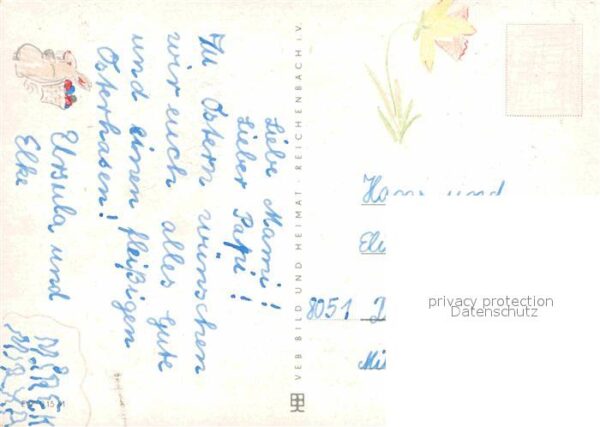 Liebe Mami!
Lieber Papi!
Zu Ostern wünschen
wir euch alles Gute
und einen fleißigen
Osterhasen!
Ursula und
Elke
VEB BILD UND HEIMAT REICHENBACH i.V.
und
8051
privacy protection
Datenschutz